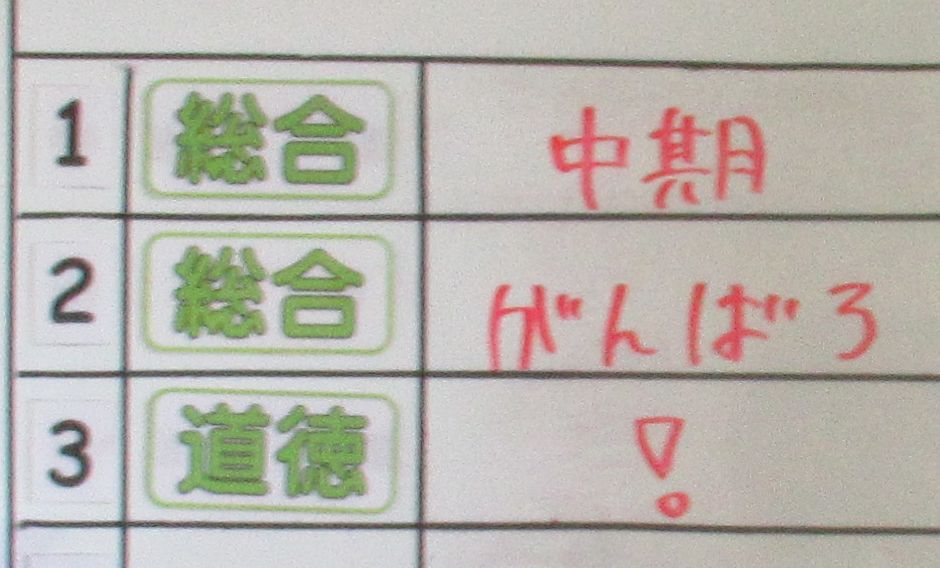 1 総合 中期
2 総合 がんばろ
3 道徳 !